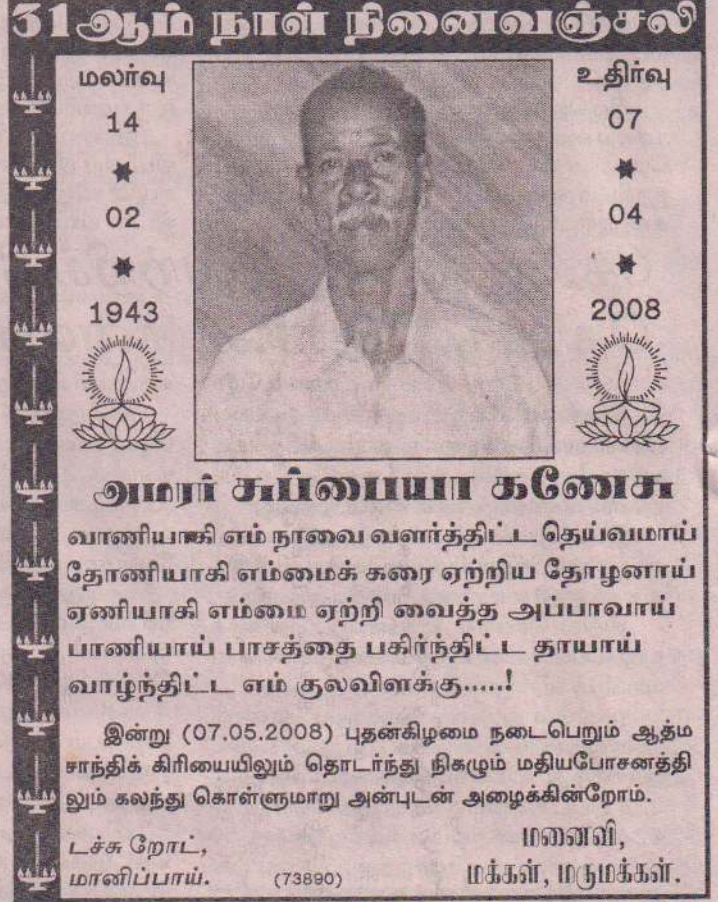 31ஆம் நாள் நினைவஞ்சலி
மலர்வு
14
02
1943
உதிர்வு
07
04
2008
அமரர் சுப்பையா கணேசு
வாணியாகி எம் நாவை வளர்த்திட்ட தெய்வமாய்
தோணியாகி எம்மைக் கரை ஏற்றிய தோழனாய்
ஏணியாகி எம்மை ஏற்றி வைத்த அப்பாவாய்
பாணியாய் பாசத்தை பகிர்ந்திட்ட தாயாய்
வாழ்ந்திட்ட எம் குலவிளக்கு.....!
இன்று (07.05.2008) புதன்கிழமை நடைபெறும் ஆத்ம
சாந்திக் கிரியையிலும் தொடர்ந்து நிகழும் மதியபோசனத்தி
லும் கலந்து கொள்ளுமாறு அன்புடன் அழைக்கின்றோம்.
டச்சு றோட்,
மானிப்பாய். (73890)
மனைவி,
மக்கள், மருமக்கள்.